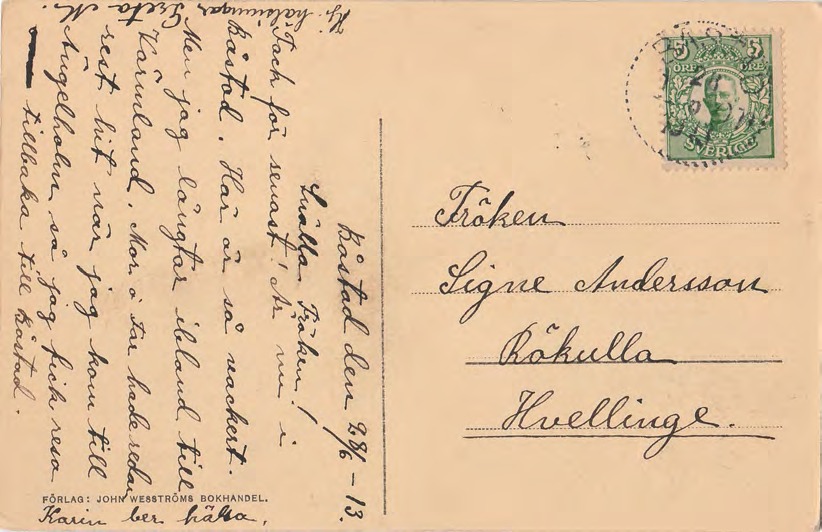 Båstad den 28/6 - 13.
Snälla Fröken!
Tack för senast! Är nu i
Båstad. Här är så vackert.
Men jag längtar ibland till
Värmland. Mor o Far hade redan
rest hit när jag kom till
Ängelholm så jag fick resa
tillbaka till Båstad.
Hj. hälsningar Greta N.
Karin ber hälsa.
FÖRLAG: JOHN WESSTRÖMS BOKHANDEL.
5 5
ÖRE ÖRE
SVERIGE
BÅSTAD
Fröken
Signe Andersson
Rökulla
Hvellinge.